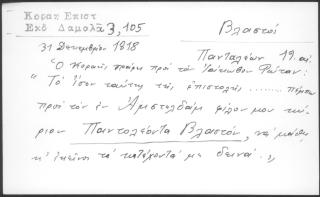 Κοραη Επιστ
Εκδ Δαμαλα 3, 105
Βλαστοί
31 Δεκεμβρίου 1818
Πανταλέων 19. αι.
"Ὁ Κοραῆς γράφει πρὸς τὸν Ἰάκωβον Ρώταν:
"Τὸ ἴσον ταύτης τῆς ἐπιστολῆς ........ πέμπω
πρὸς τὸν ἐν Ἀμστελδὰμ φίλον μου κύ-
ριον Παντολέοντα Βλαστόν, νὰ μάθῃ
κ' ἐκεῖνος τὰ κατέχοντά με δεινά.„